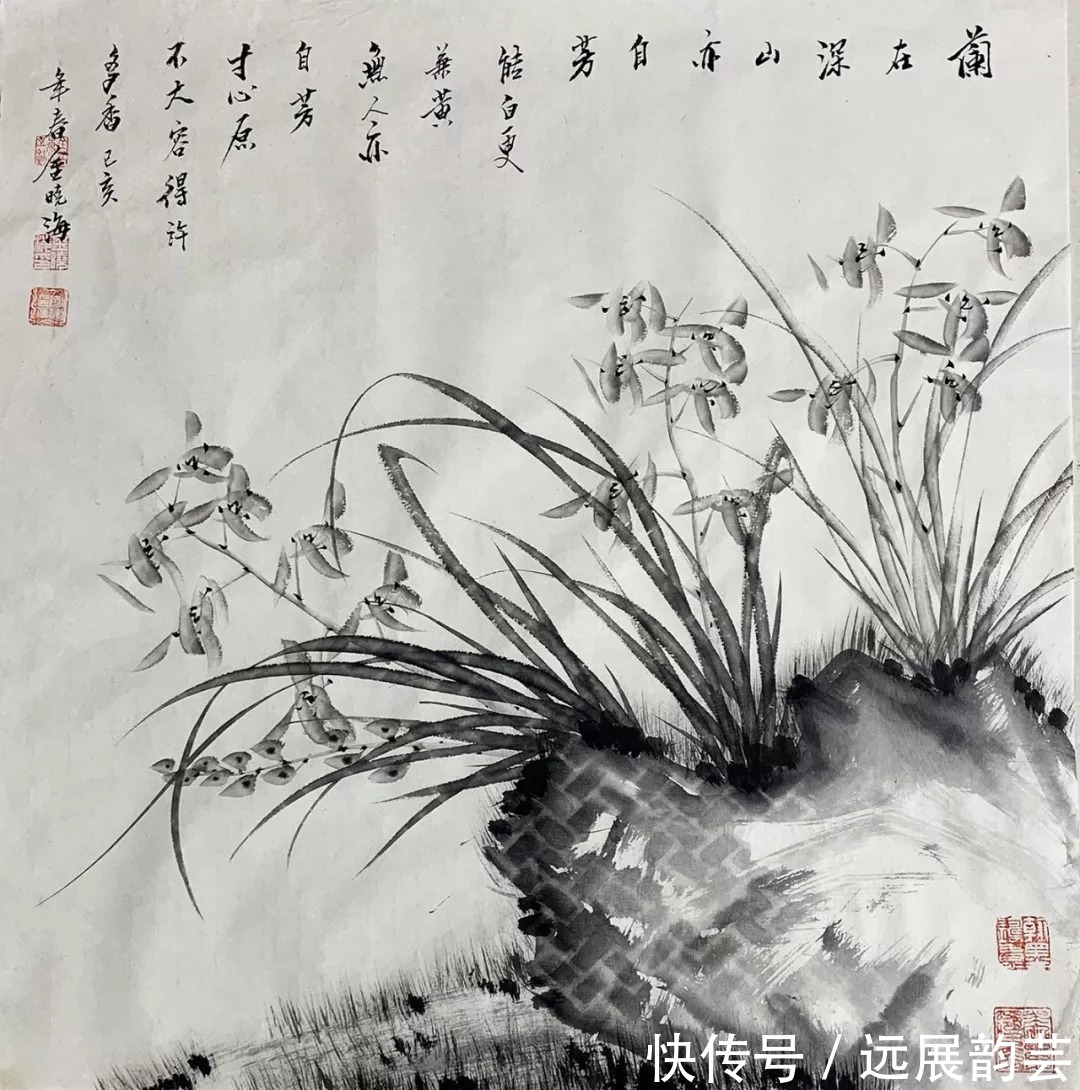 蘭在深山亦自芳
能白更
兼黄
無人亦
自芳
寸心原
不大容得許
多香 己亥
年春金曉海
快传号 / 远展韵芸